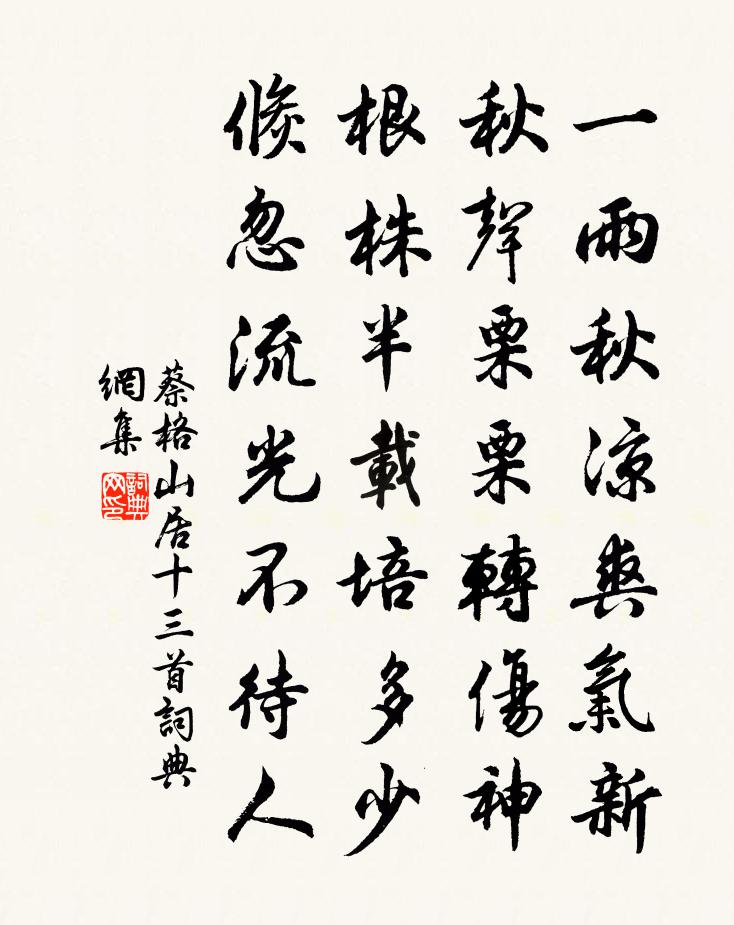 一雨秋涼爽氣新
秋聲栗栗轉傷神
根株半載培多少
倏忽流光不待人
蔡格山居十三首詞典
網集
詞典
网印